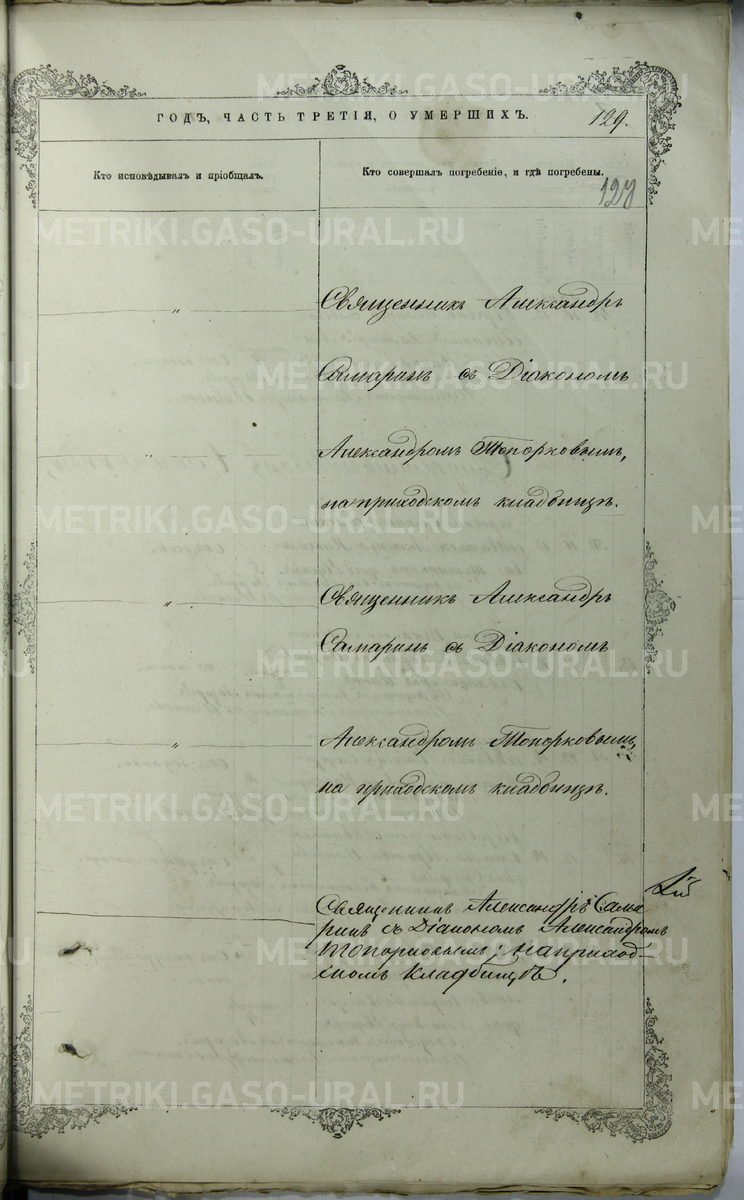 ГОДЪ, ЧАСТЬ ТРЕТІЯ, О УМЕРШИХЪ. 129.
Кто исповѣдывалъ и пріобщалъ.
Кто совершалъ погребеніе, и гдѣ погребены.
127
"
Священникъ Александръ
Самаринъ съ Діакономъ
"
Александромъ Топорковымъ,
на приходскомъ кладбищѣ.
"
Священникъ Александръ
Самаринъ съ Діакономъ
"
Александромъ Топорковымъ,
на приходскомъ кладбищѣ.
Священникъ Александръ Сама
ринъ съ Діакономъ Александромъ
Топорковымъ; на приход-
скомъ кладбищѣ.
METRIKI.GASO-URAL.RU